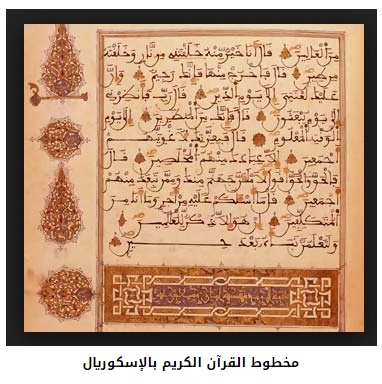 من العالين قال أنا خير منه خلقتني من نار وخلقته
من طين قال فاخرج منها فإنك رجيم وإن
عليك لعنتي إلى يوم الدين قال رب فأنظرني
إلى يوم يبعثون قال فإنك من المنظرين إلى يوم
الوقت المعلوم قال فبعزتك لأغوينهم
أجمعين إلا عبادك منهم المخلصين قال
فالحق والحق أقول لأملأن جهنم منك وممن تبعك منهم
أجمعين قل ما أسألكم عليه من أجر وما أنا من
المتكلفين إن هو إلا ذكر للعالمين
ولتعلمن نبأه بعد حين
مخطوط القرآن الكريم بالإسكوريال